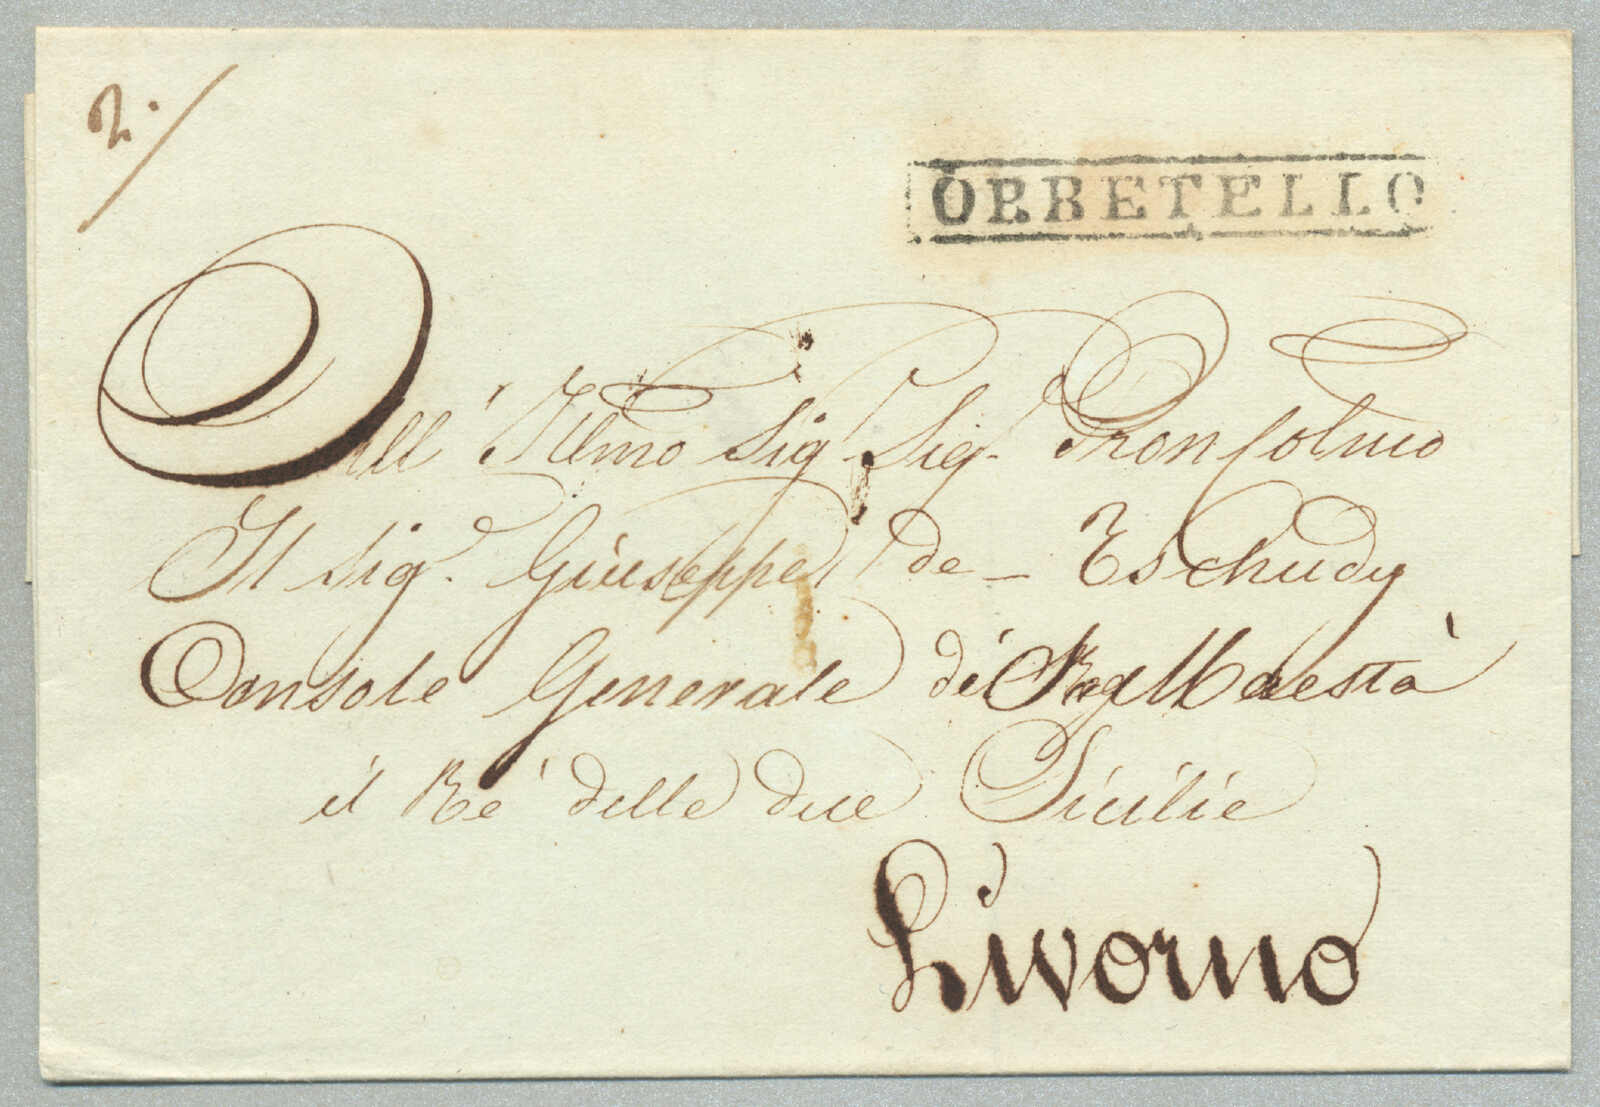 2.
ORBETELLO
All' Illmo Sig Sig. Pron Colmo
Il Sig. Giuseppe de - Tschudy
Console Generale di Maestà
il Re' delle due Sicilie
Livorno